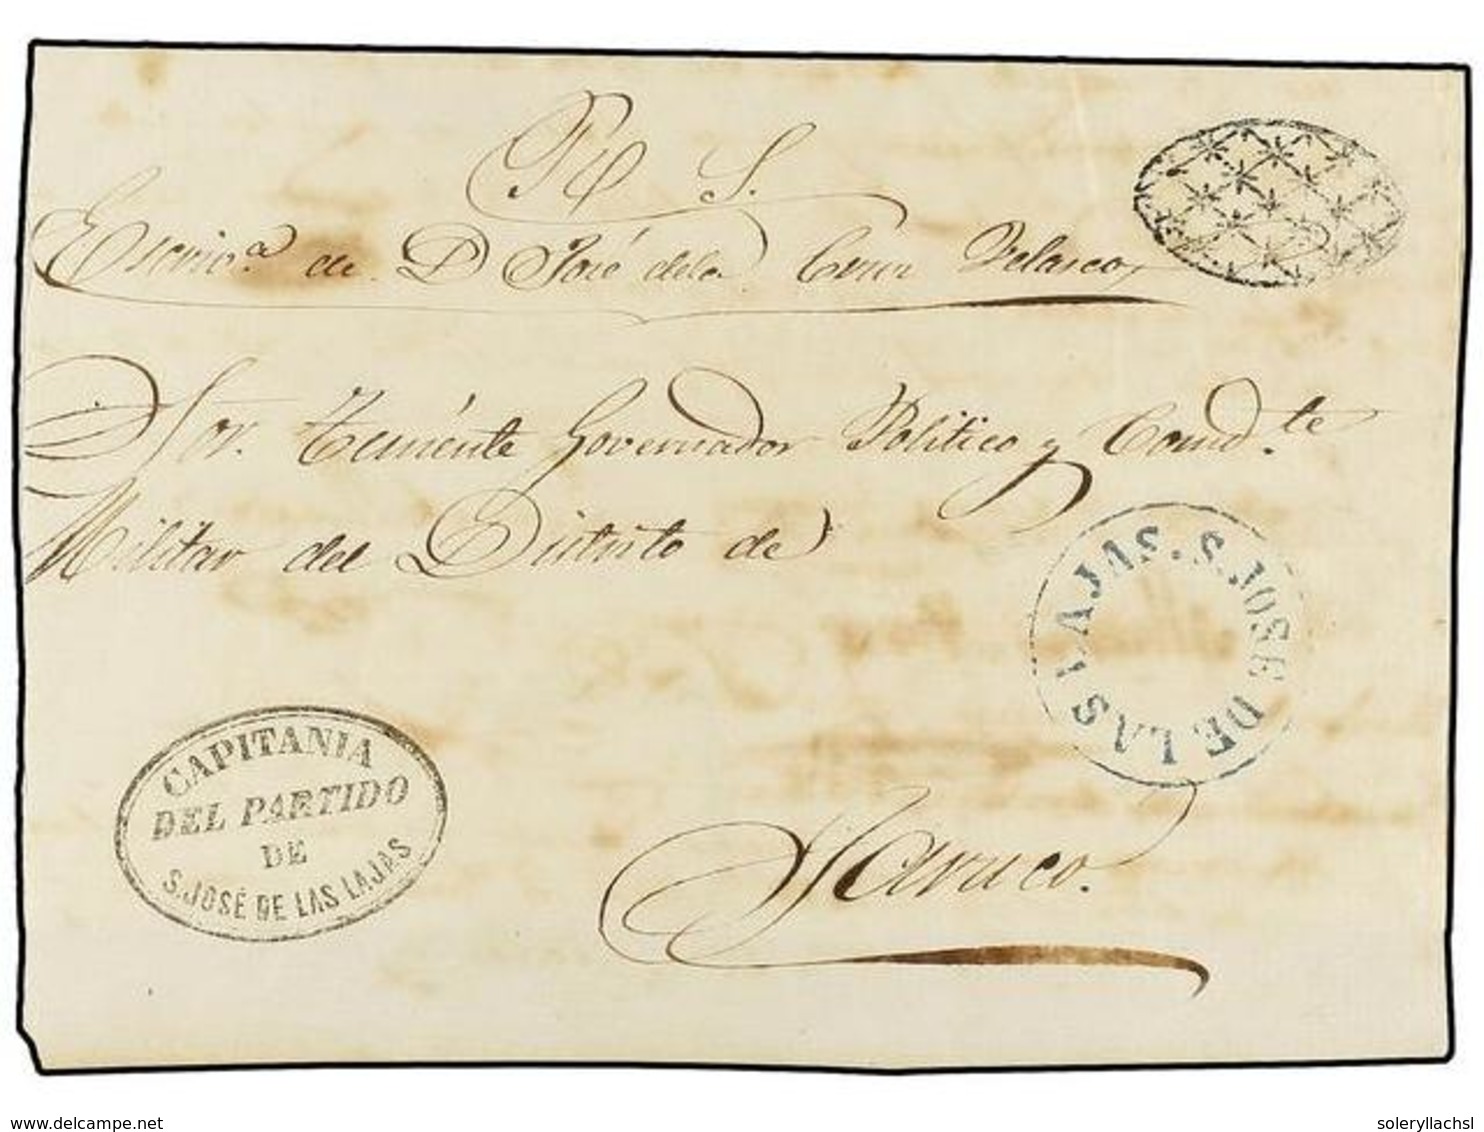 R S.
Escriv.ª de D José dela Cruz Velasco
Sor. Teniénte Governador Politico y Comd.te
Militar del Distrito de
S. JOSE DE LAS LAJAS.
CAPITANIA
DEL PARTIDO
DE
S. JOSÉ DE LAS LAJAS
Jaruco.
www.delcampe.net
soleryllachsl